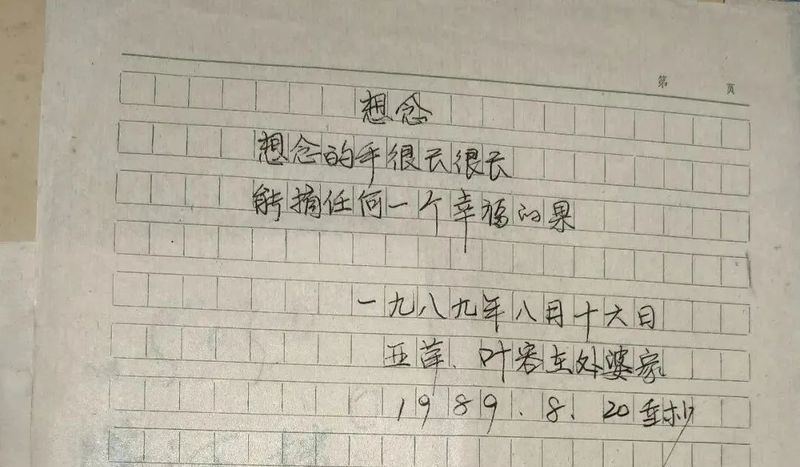 第 页
想念
想念的手很长很长
能摘任何一个幸福的果
一九八九年八月十六日
亚萍、叶客在外婆家
1989.8.20重抄